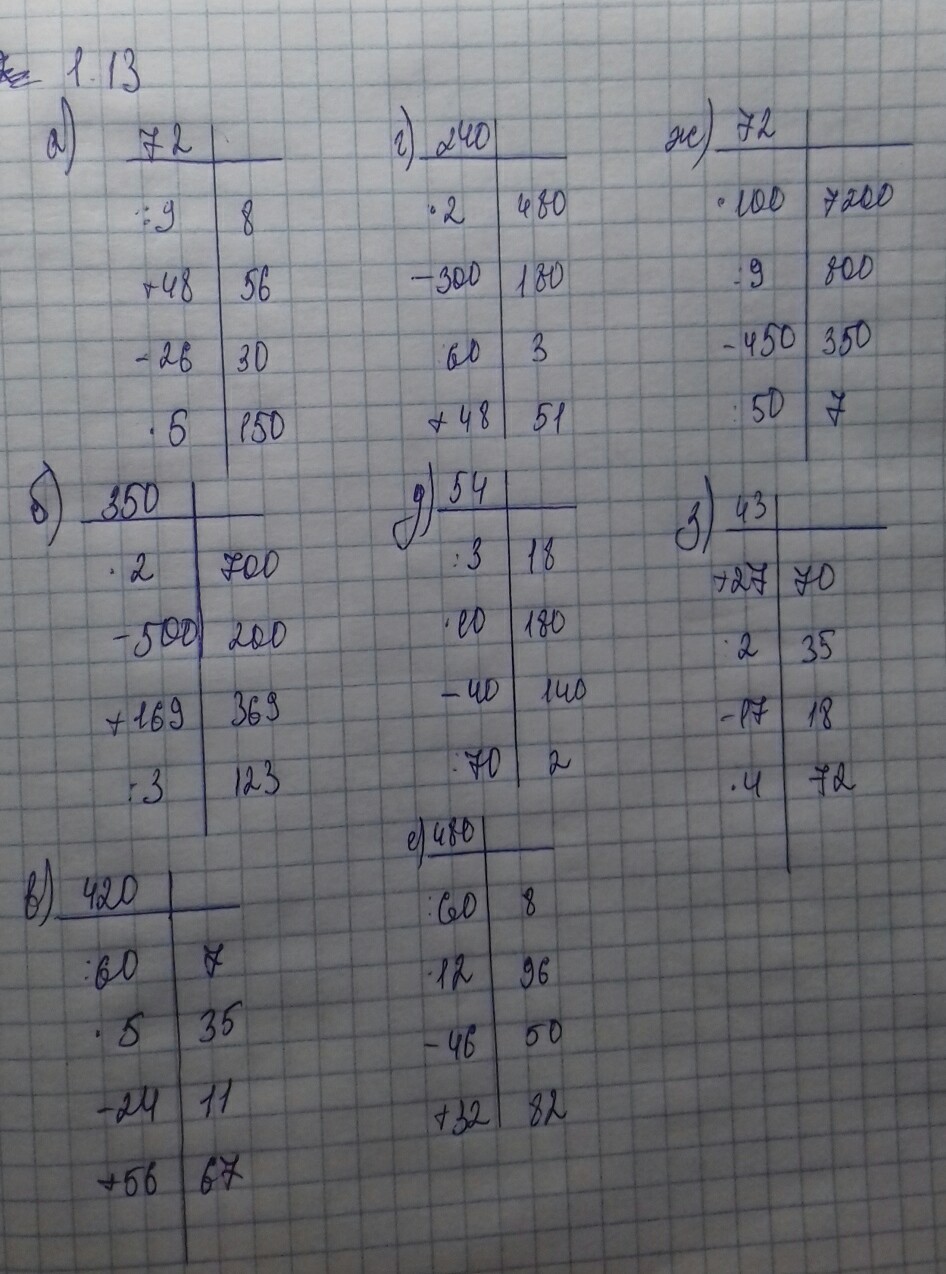 1.13
а) 72
:9 8
+48 56
-26 30
·5 150
б) 350
·2 700
-500 200
+169 369
:3 123
в) 420
:60 7
·5 35
-24 11
+56 67
г) 240
·2 480
-300 180
:60 3
+48 51
д) 54
:3 18
·10 180
-40 140
:70 2
е) 480
:60 8
·12 96
-46 50
+32 82
ж) 72
·100 7200
:9 800
-450 350
:50 7
з) 43
+27 70
:2 35
-17 18
·4 72